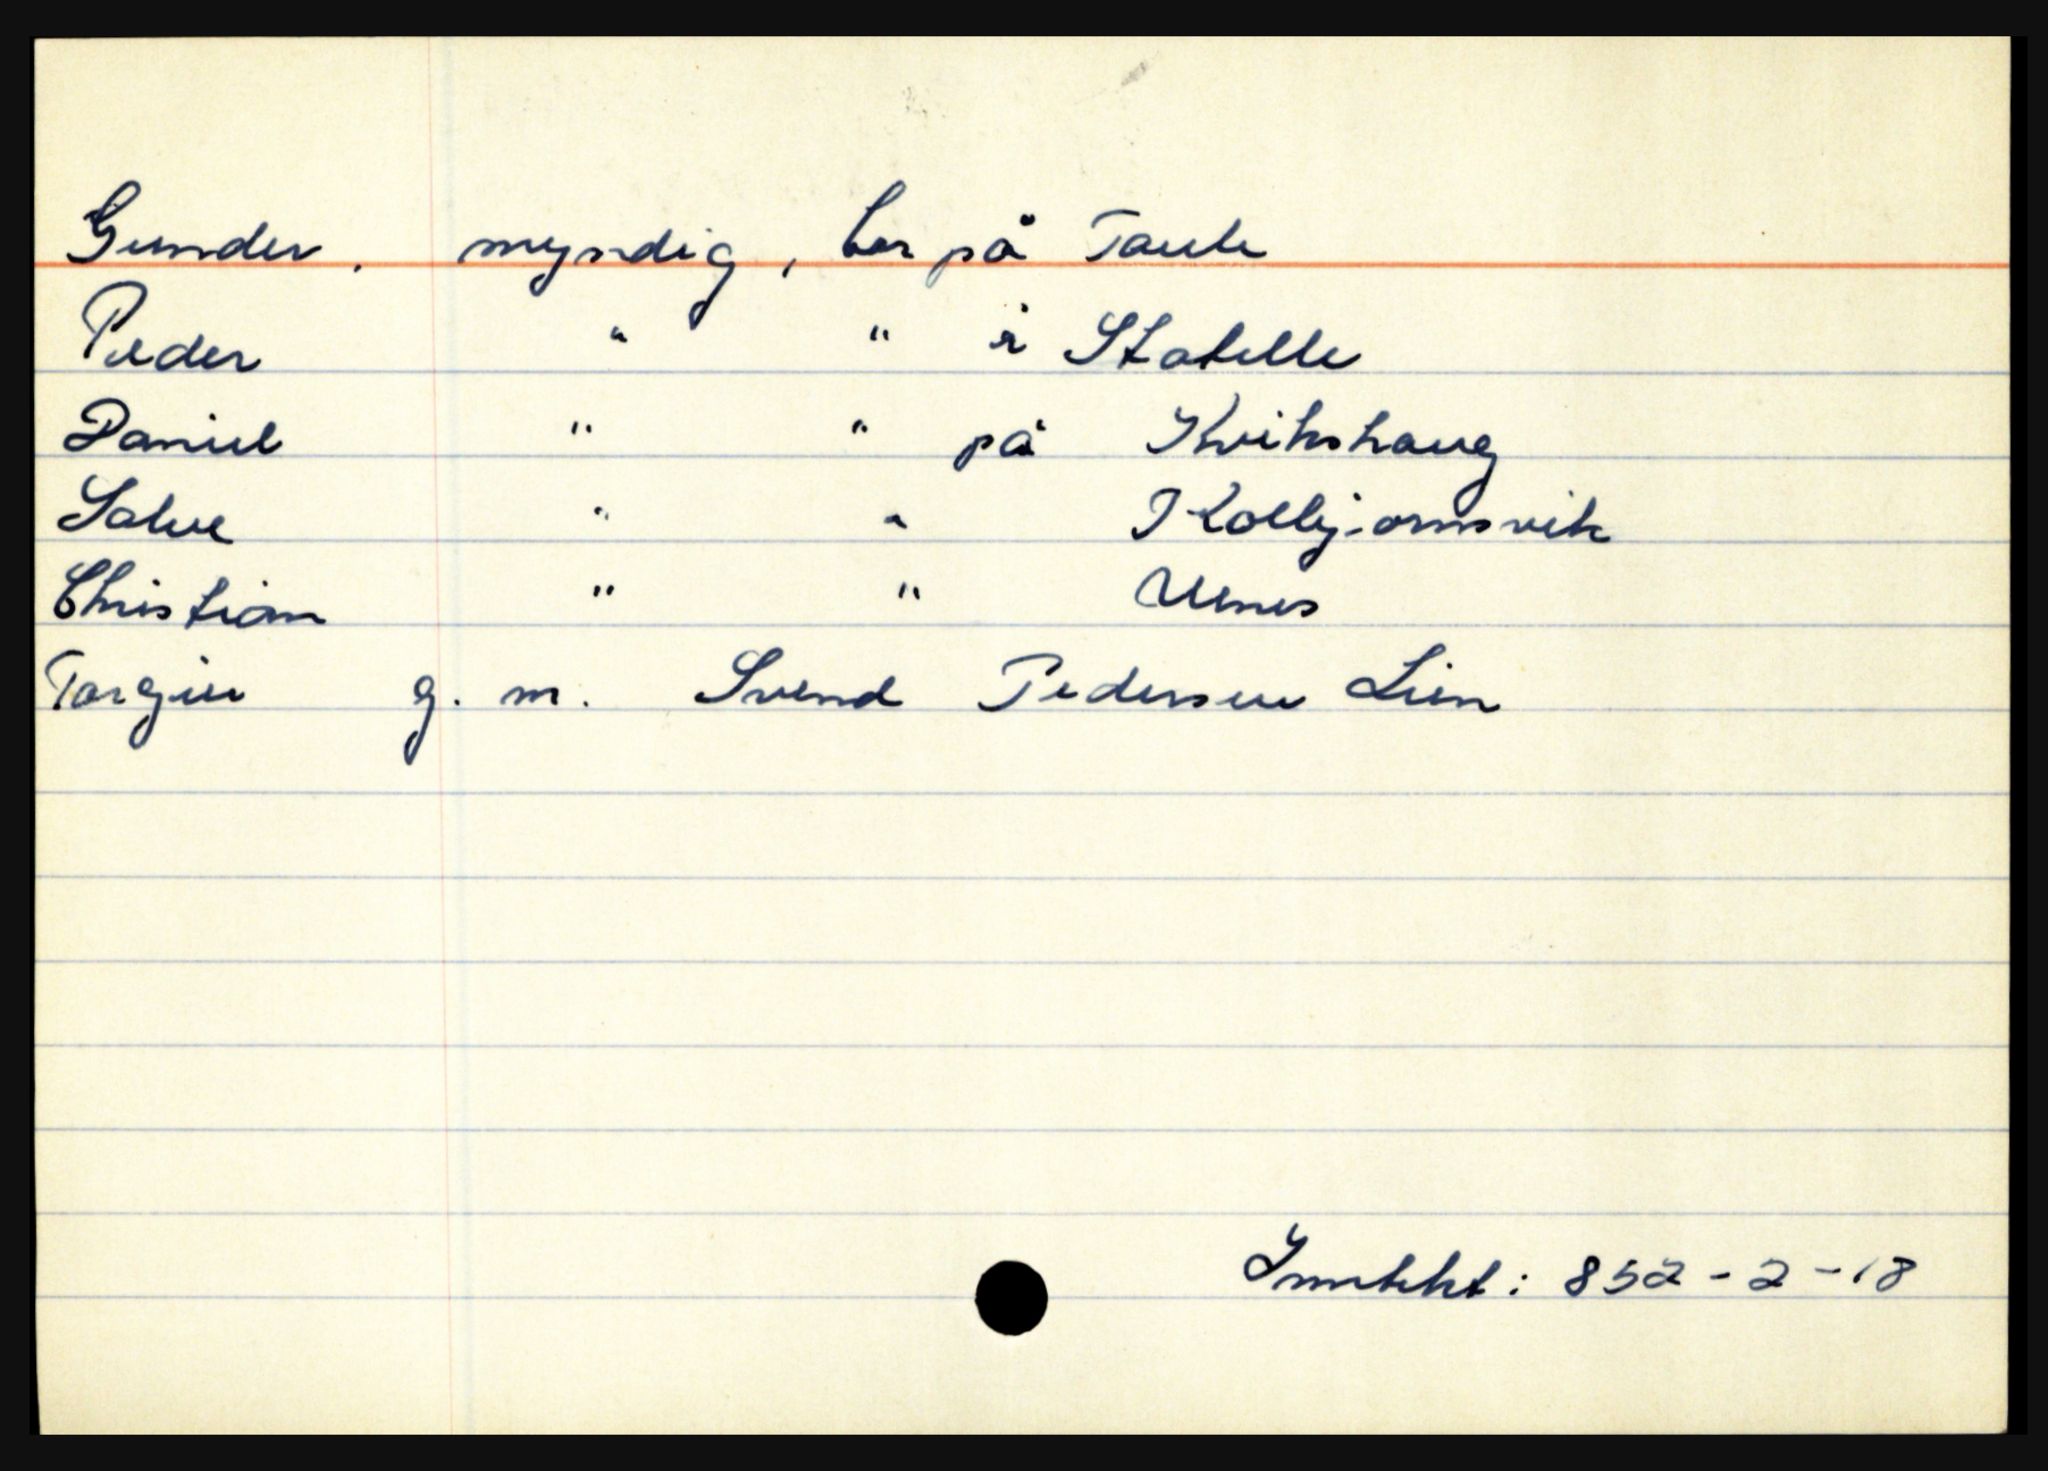 Gunder, myndig, bor på Taule
Peder " " i Statelle
Daniel " " på Kvikshaug
Salve " " Kolbjørnsvik
Christian " " Uenes
Torgier g. m. Svend Pedersen Lien
Inntekt: 852-2-18